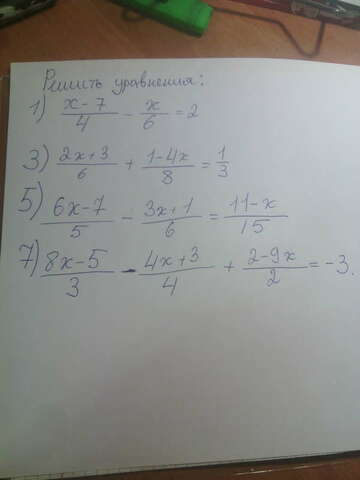 Решить уравнения:
1) \frac{x-7}{4} - \frac{x}{6} = 2
3) \frac{2x+3}{6} + \frac{1-4x}{8} = \frac{1}{3}
5) \frac{6x-7}{5} - \frac{3x+1}{6} = \frac{11-x}{15}
7) \frac{8x-5}{3} - \frac{4x+3}{4} + \frac{2-9x}{2} = -3.